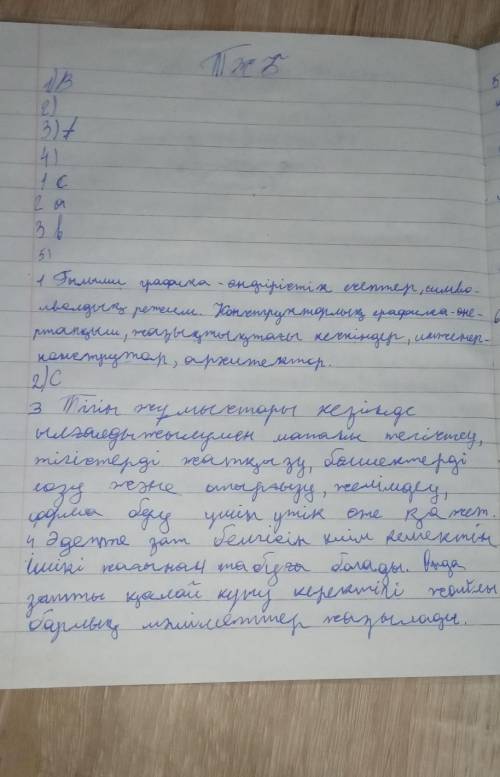 ТЖБ
1) В
2)
3) А
4)
1 с
2 а
3 в
5)
1 Ғылыми графика - өндірістік есептер, симво-
лволдық режим. Конструкторлық графика - өне-
ртапқыш, жазықтықтағы кескіндер, инженер-
конструтор, архитектор.
2) С
3 Тігін жұмыстары кезінде
ылғалды жылумен матаны тегістеу,
тігістерді жатқызу, бөлшектерді
созу және отырғызу, желімдеу,
форма беру үшін үтік өте қажет.
4. Әдетте зат белгісін киім көйлектің
ішкі жағынан табуға болады. Онда
затты қалай күту керектігі жайлы
барлық мәліметтер жазылады.